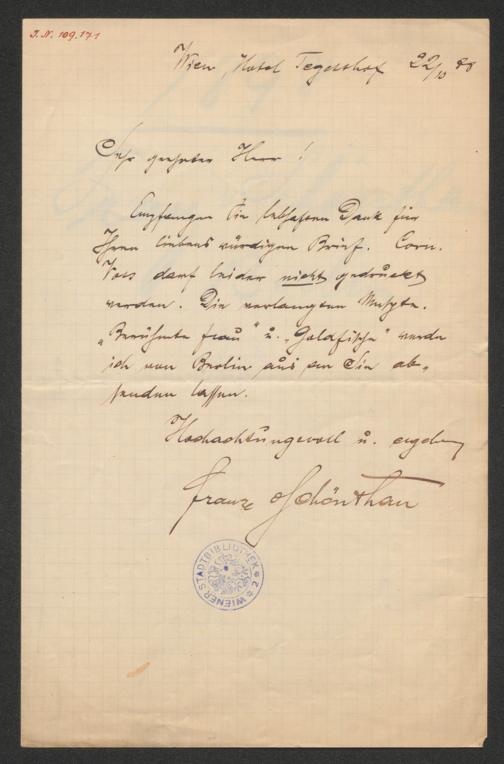 J.N. 109.171
Wien, Hotel Tegetthof 22/10 88
Sehr geehrter Herr!
Empfangen Sie lebhaften Dank für
Ihren liebenswürdigen Brief. Corn.
Voss darf leider nicht gedruckt
werden. Die verlangten Mscpte.
„Berühmte Frau" u. „Goldfische" werde
ich von Berlin aus an Sie ab-
senden lassen.
Hochachtungsvoll u. ergeben
Franz v Schönthan
WIENER STADTBIBLIOTHEK